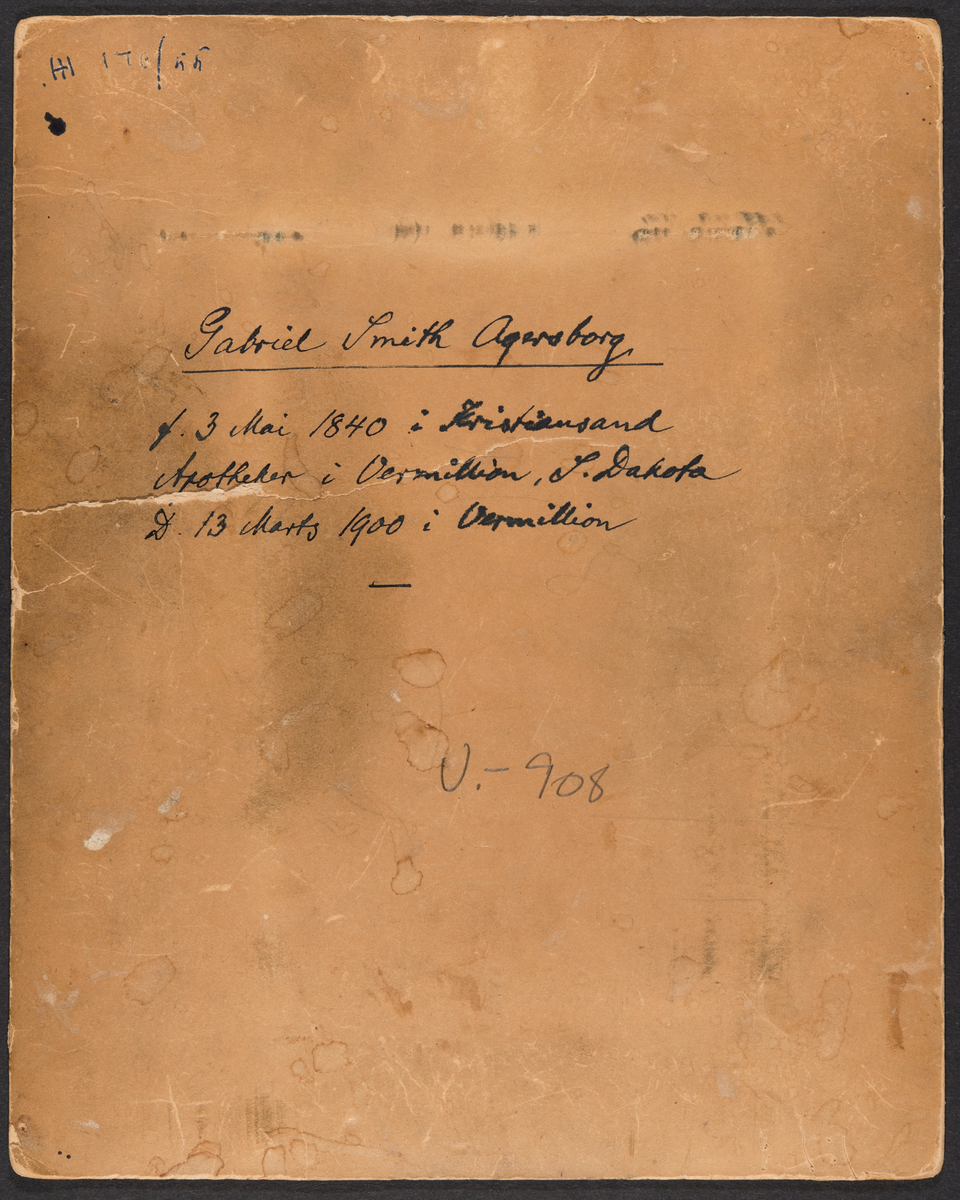 Gabriel Smith Agersborg
f. 3 Mai 1840 i Kristiansand
Apotheker i Vermillion, S. Dakota
D. 13 Marts 1900 i Vermillion
—
V.- 908